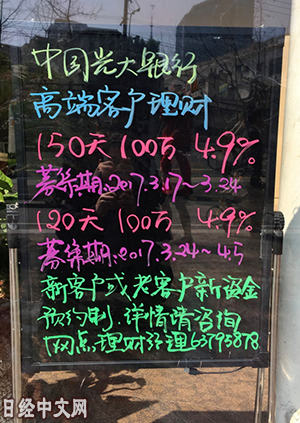 中国光大银行
高端客户理财
150天 100万 4.9%
募集期:2017.3.17~3.24
120天 100万 4.9%
募集期:2017.3.24~4.5
新客户或老客户新资金
预约制.详情请咨询
网点理财经理63795878
日经中文网